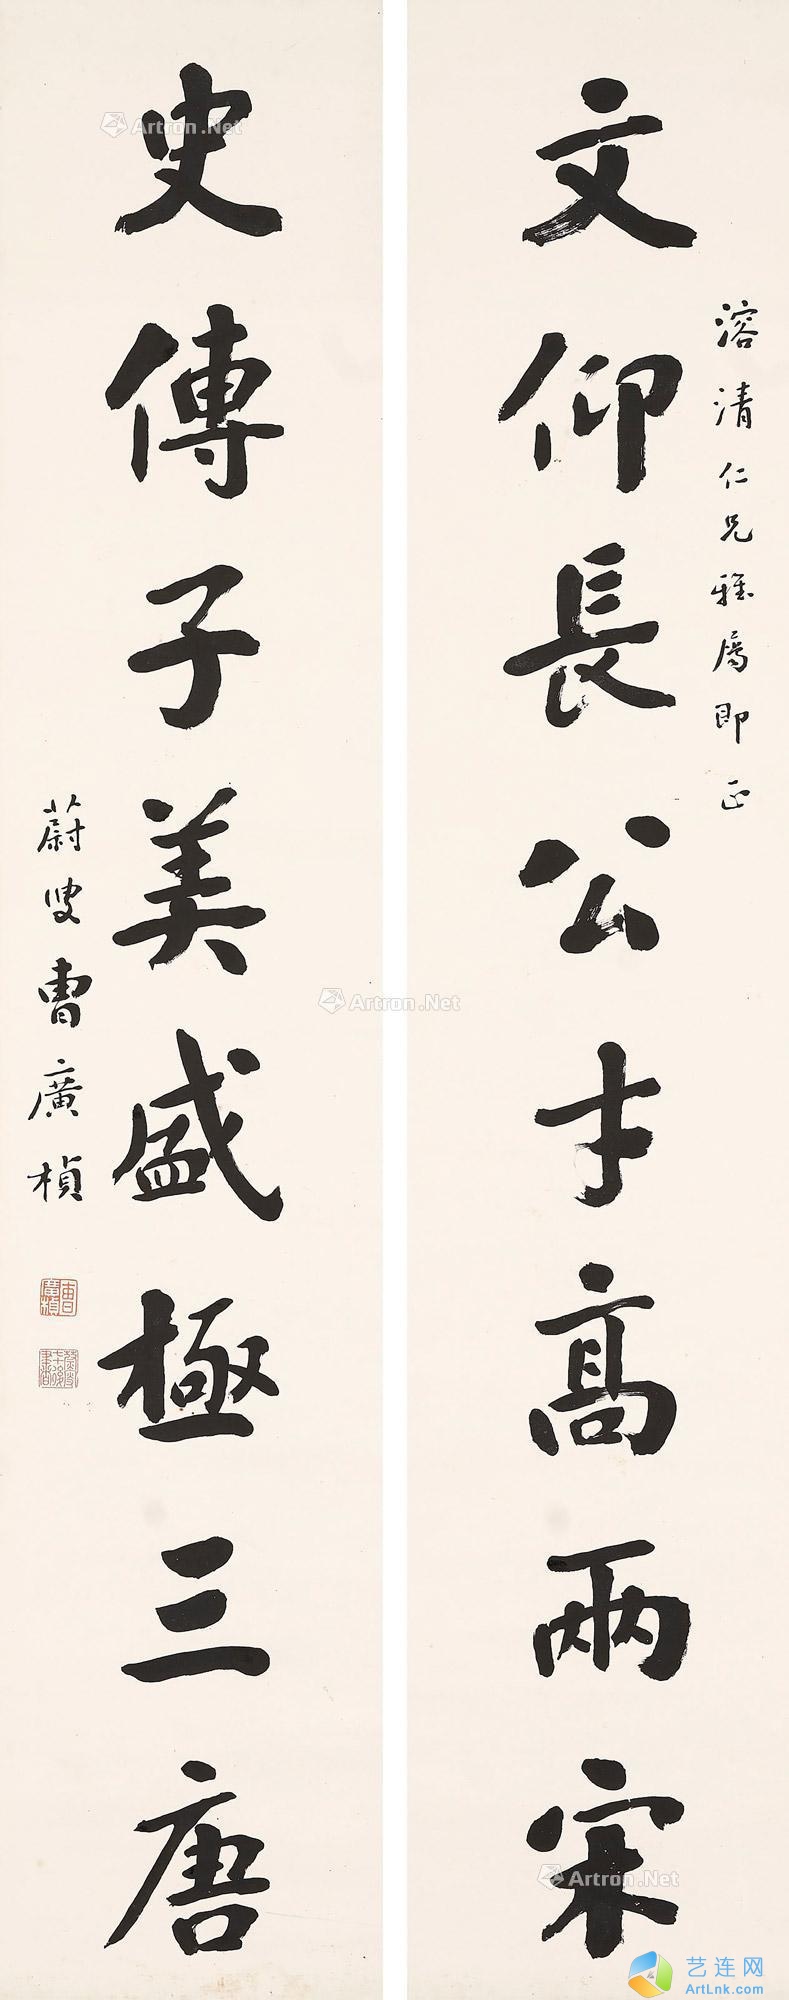 溶清仁兄雅属即正
文仰長公才高兩宋
史傳子美盛極三唐
蔚叟曹廣楨
曹廣楨
Artron.Net
Artron.Net
Artron.Net
艺连网
ArtLnk.com